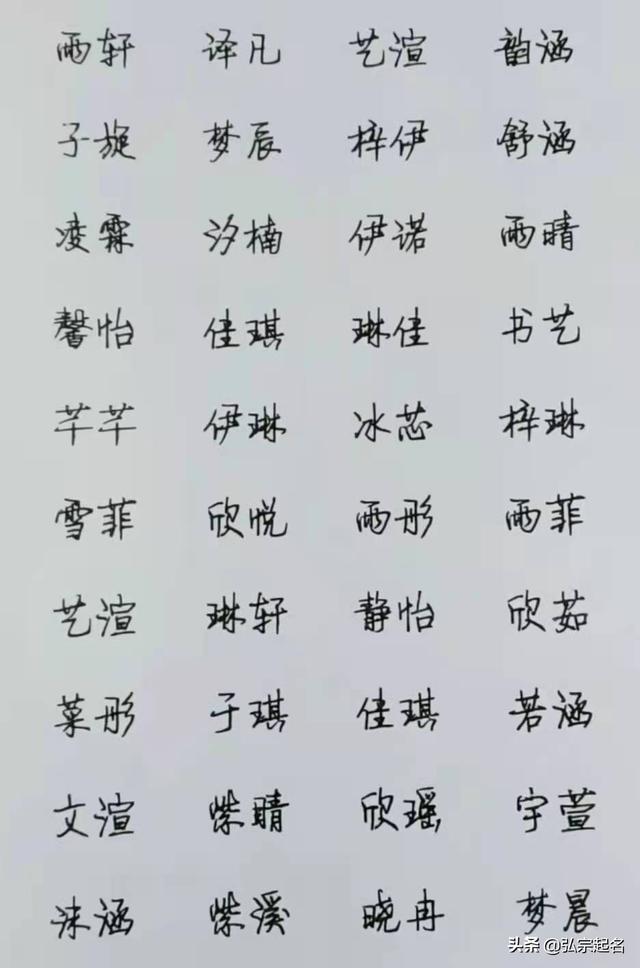 雨轩 译凡 艺渲 韵涵
子旋 梦辰 梓伊 舒涵
凌霖 汐楠 伊诺 雨晴
馨怡 佳琪 琳佳 书艺
芊芊 伊琳 冰芯 梓琳
雪菲 欣悦 雨彤 雨菲
艺渲 琳轩 静怡 欣茹
菜彤 于琪 佳琪 若涵
文渲 紫晴 欣瑶 宇萱
沫涵 紫溪 晓冉 梦晨
头条 @弘宗起名